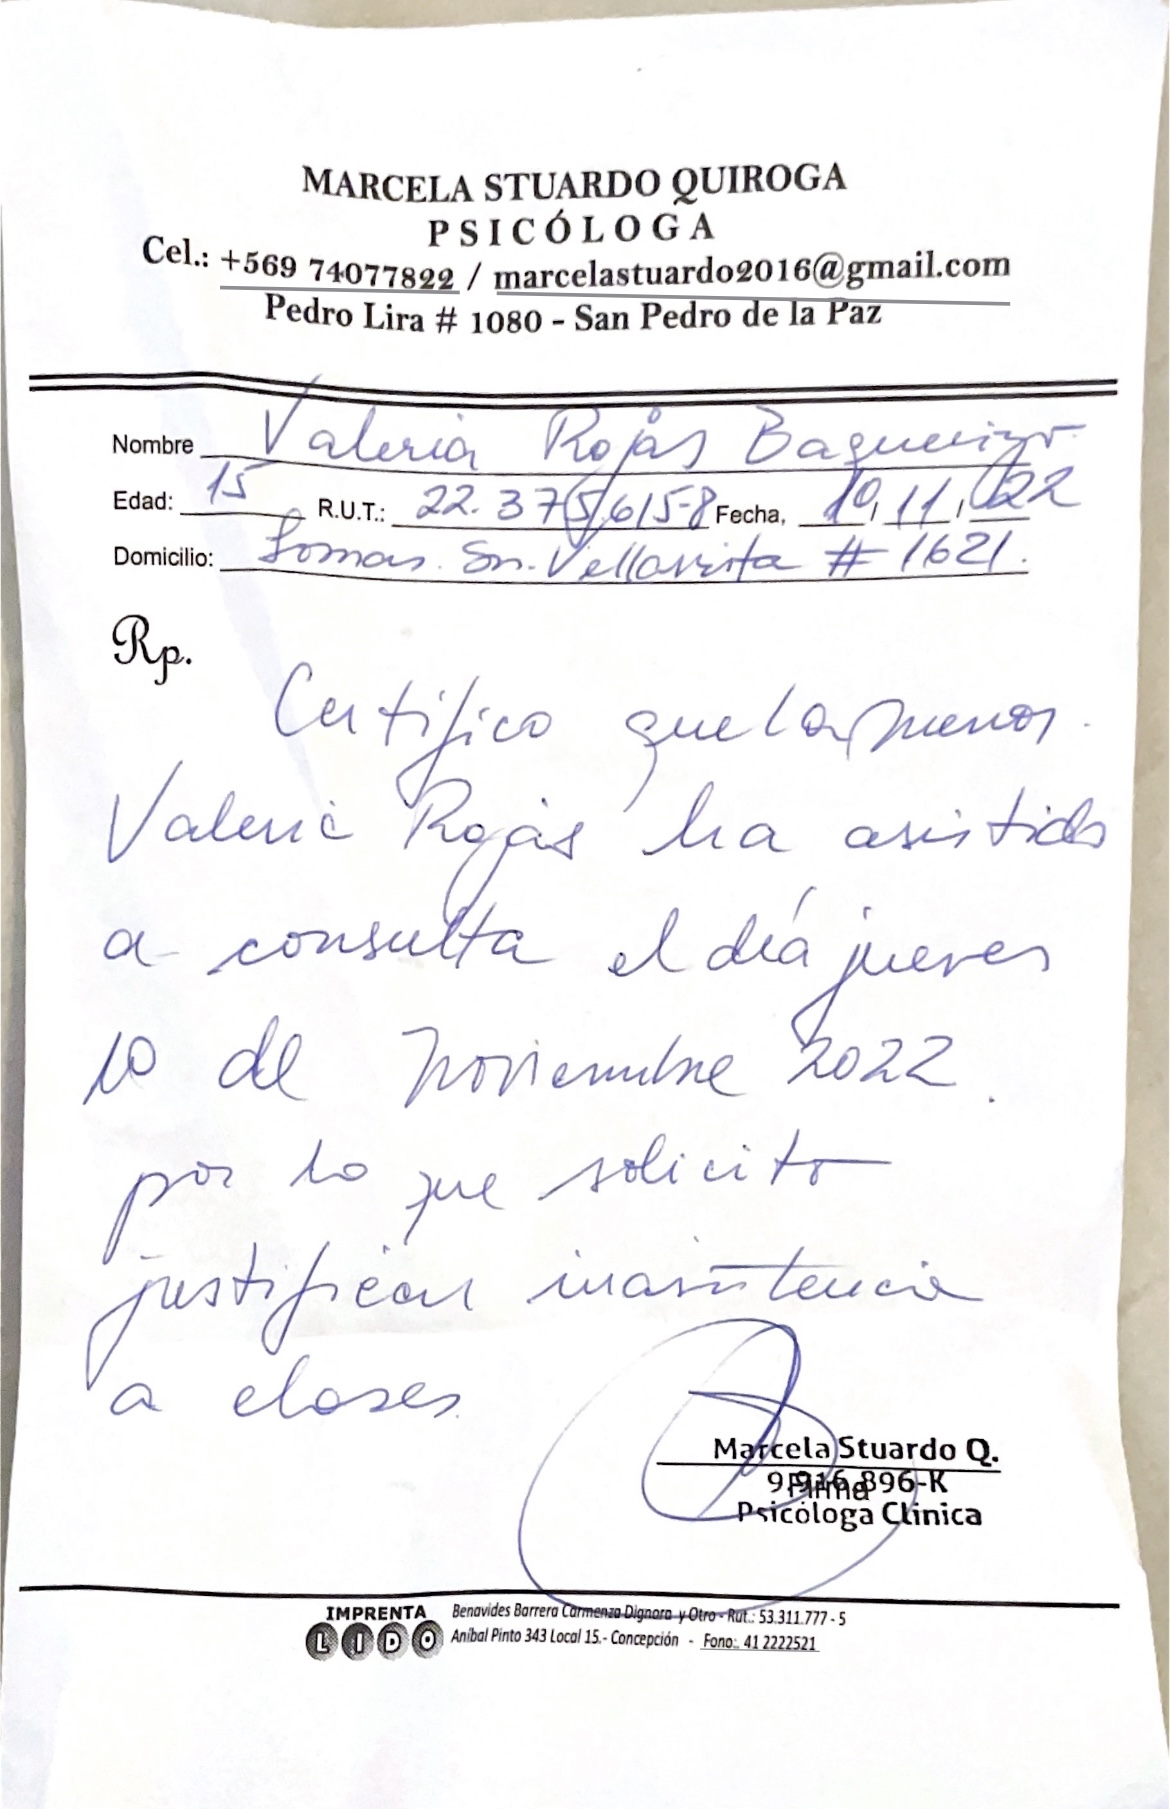 MARCELA STUARDO QUIROGA
PSICÓLOGA
Cel.: +569 74077822 / marcelastuardo2016@gmail.com
Pedro Lira # 1080 - San Pedro de la Paz
Nombre Valeria Rojas
Edad: 15 R.U.T.: 22.375.615-8 Fecha, 10, 11, 022
Domicilio: Lomas Sn. # 1621.
Rp.
Certifico que la menor
Valeria Rojas ha asistido
a consulta el día jueves
10 de Noviembre 2022.
por lo que solicito
justificar inasistencia
a clases
Marcela Stuardo Q.
9.916.896-K
Firma
Psicóloga Clínica
IMPRENTA LIDO
Benavides Barrera Carmenza Dignora y Otro - Rut.: 53.311.777 - 5
Aníbal Pinto 343 Local 15.- Concepción - Fono:. 41 2222521